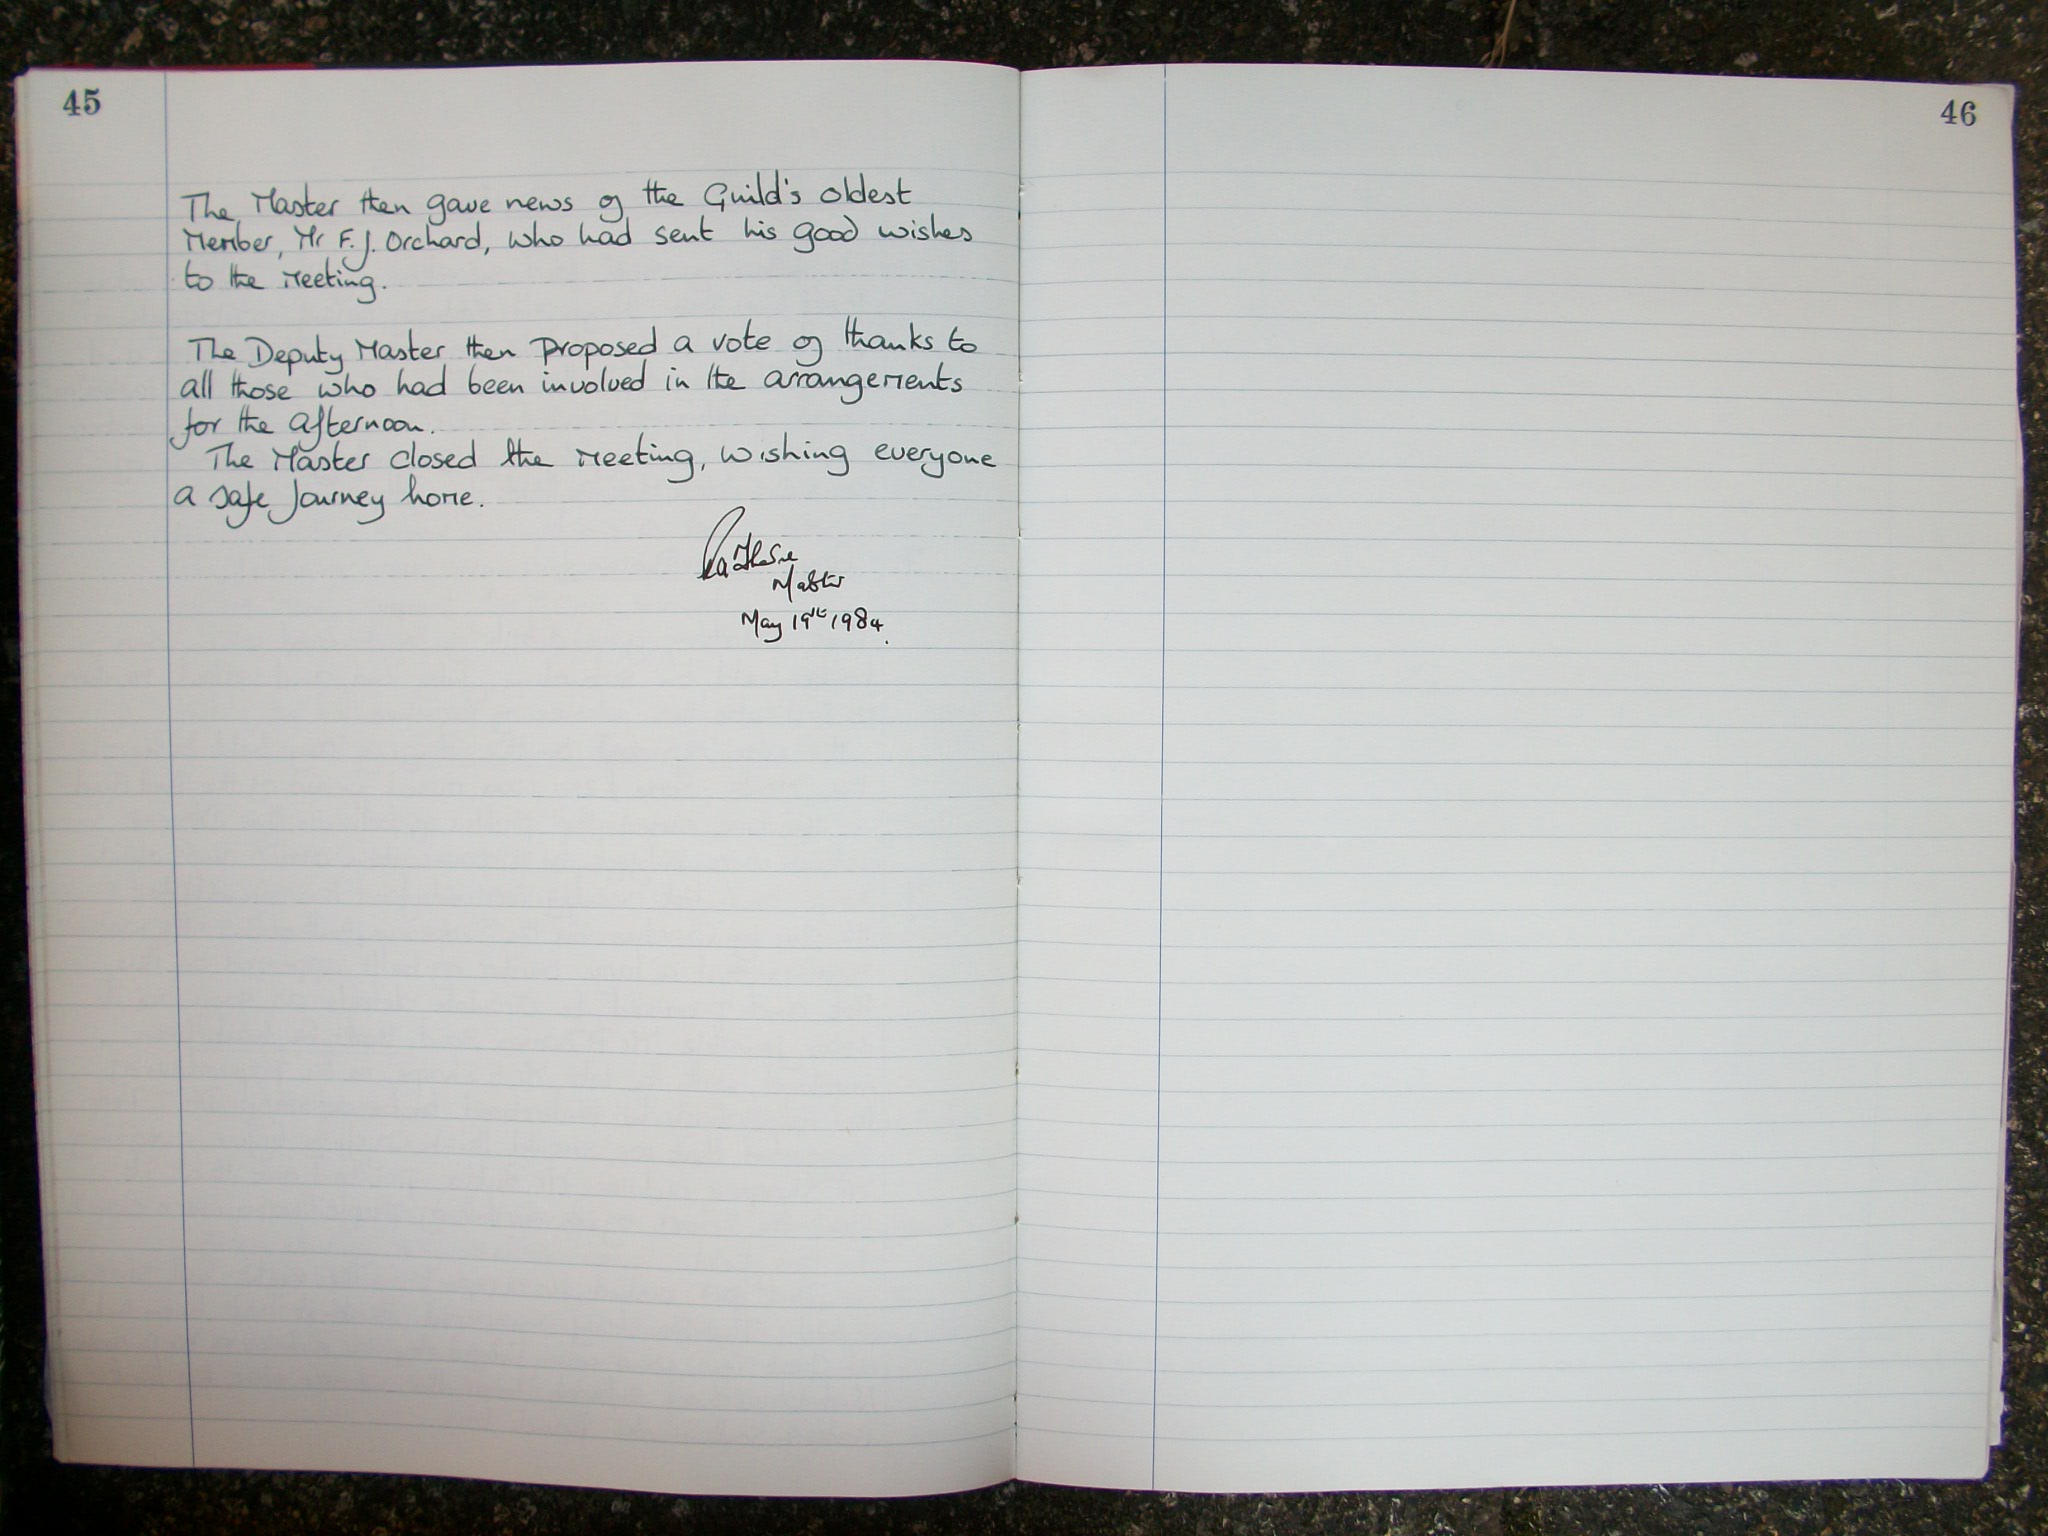 45
The Master then gave news of the Guild's oldest
Member, Mr F. J. Orchard, who had sent his good wishes
to the Meeting.
The Deputy Master then proposed a vote of thanks to
all those who had been involved in the arrangements
for the afternoon.
The Master closed the Meeting, wishing everyone
a safe Journey home.
Master
May 19th 1984.
46